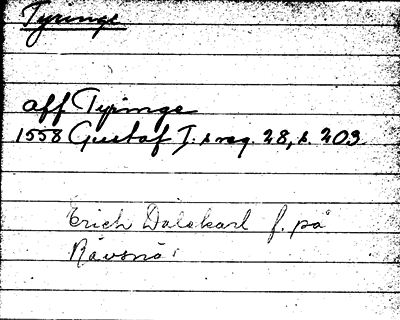 Tyringe
aff Typinge
1558 Gustaf I:s reg. 28, s. 203.
Erich Dalekarl f. på
Rävsnäs